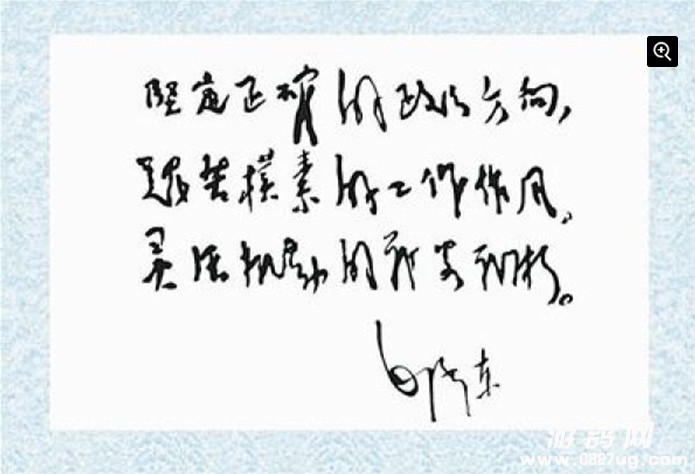 坚定正确的政治方向，
艰苦朴素的工作作风，
灵活机动的战略战术。
毛泽东
www.0827ug.com